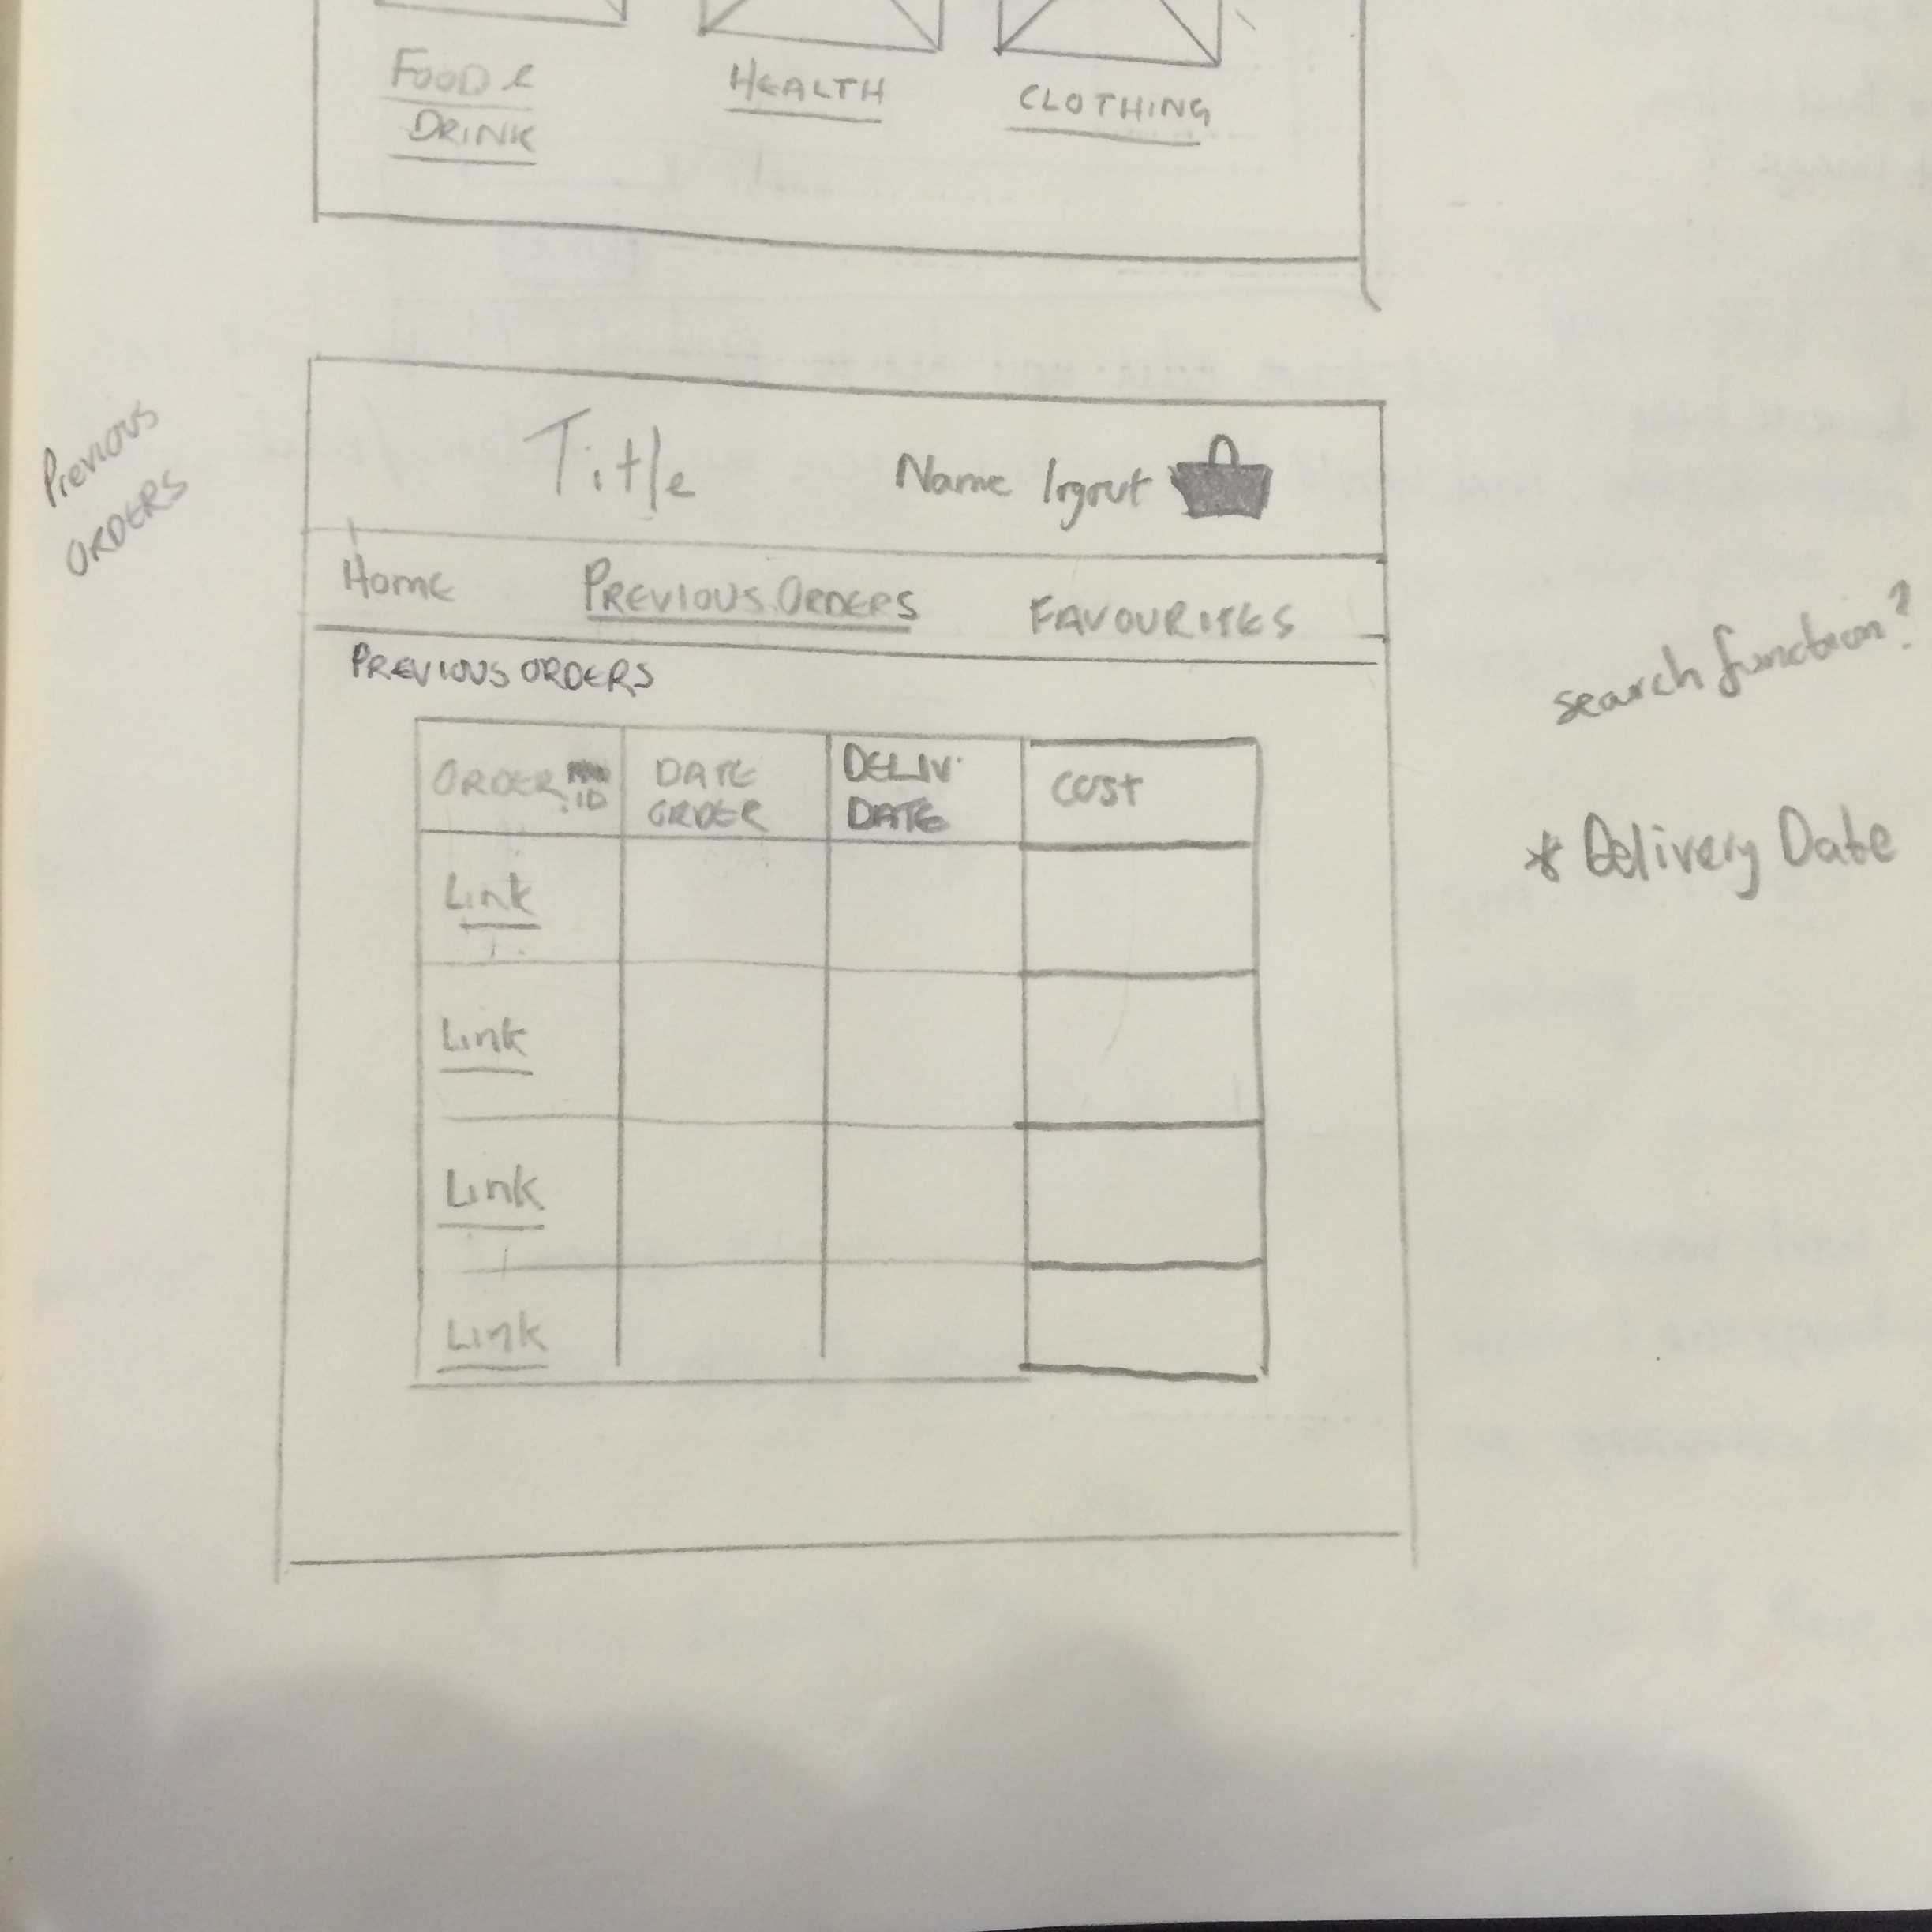 FOOD &
DRINK
HEALTH
CLOTHING
Previous
ORDERS
Title
Name logout
Home
PREVIOUS ORDERS
FAVOURITES
PREVIOUS ORDERS
ORDER ID
DATE
ORDER
DELIV.
DATE
COST
Link
Link
Link
Link
search function?
* Delivery Date